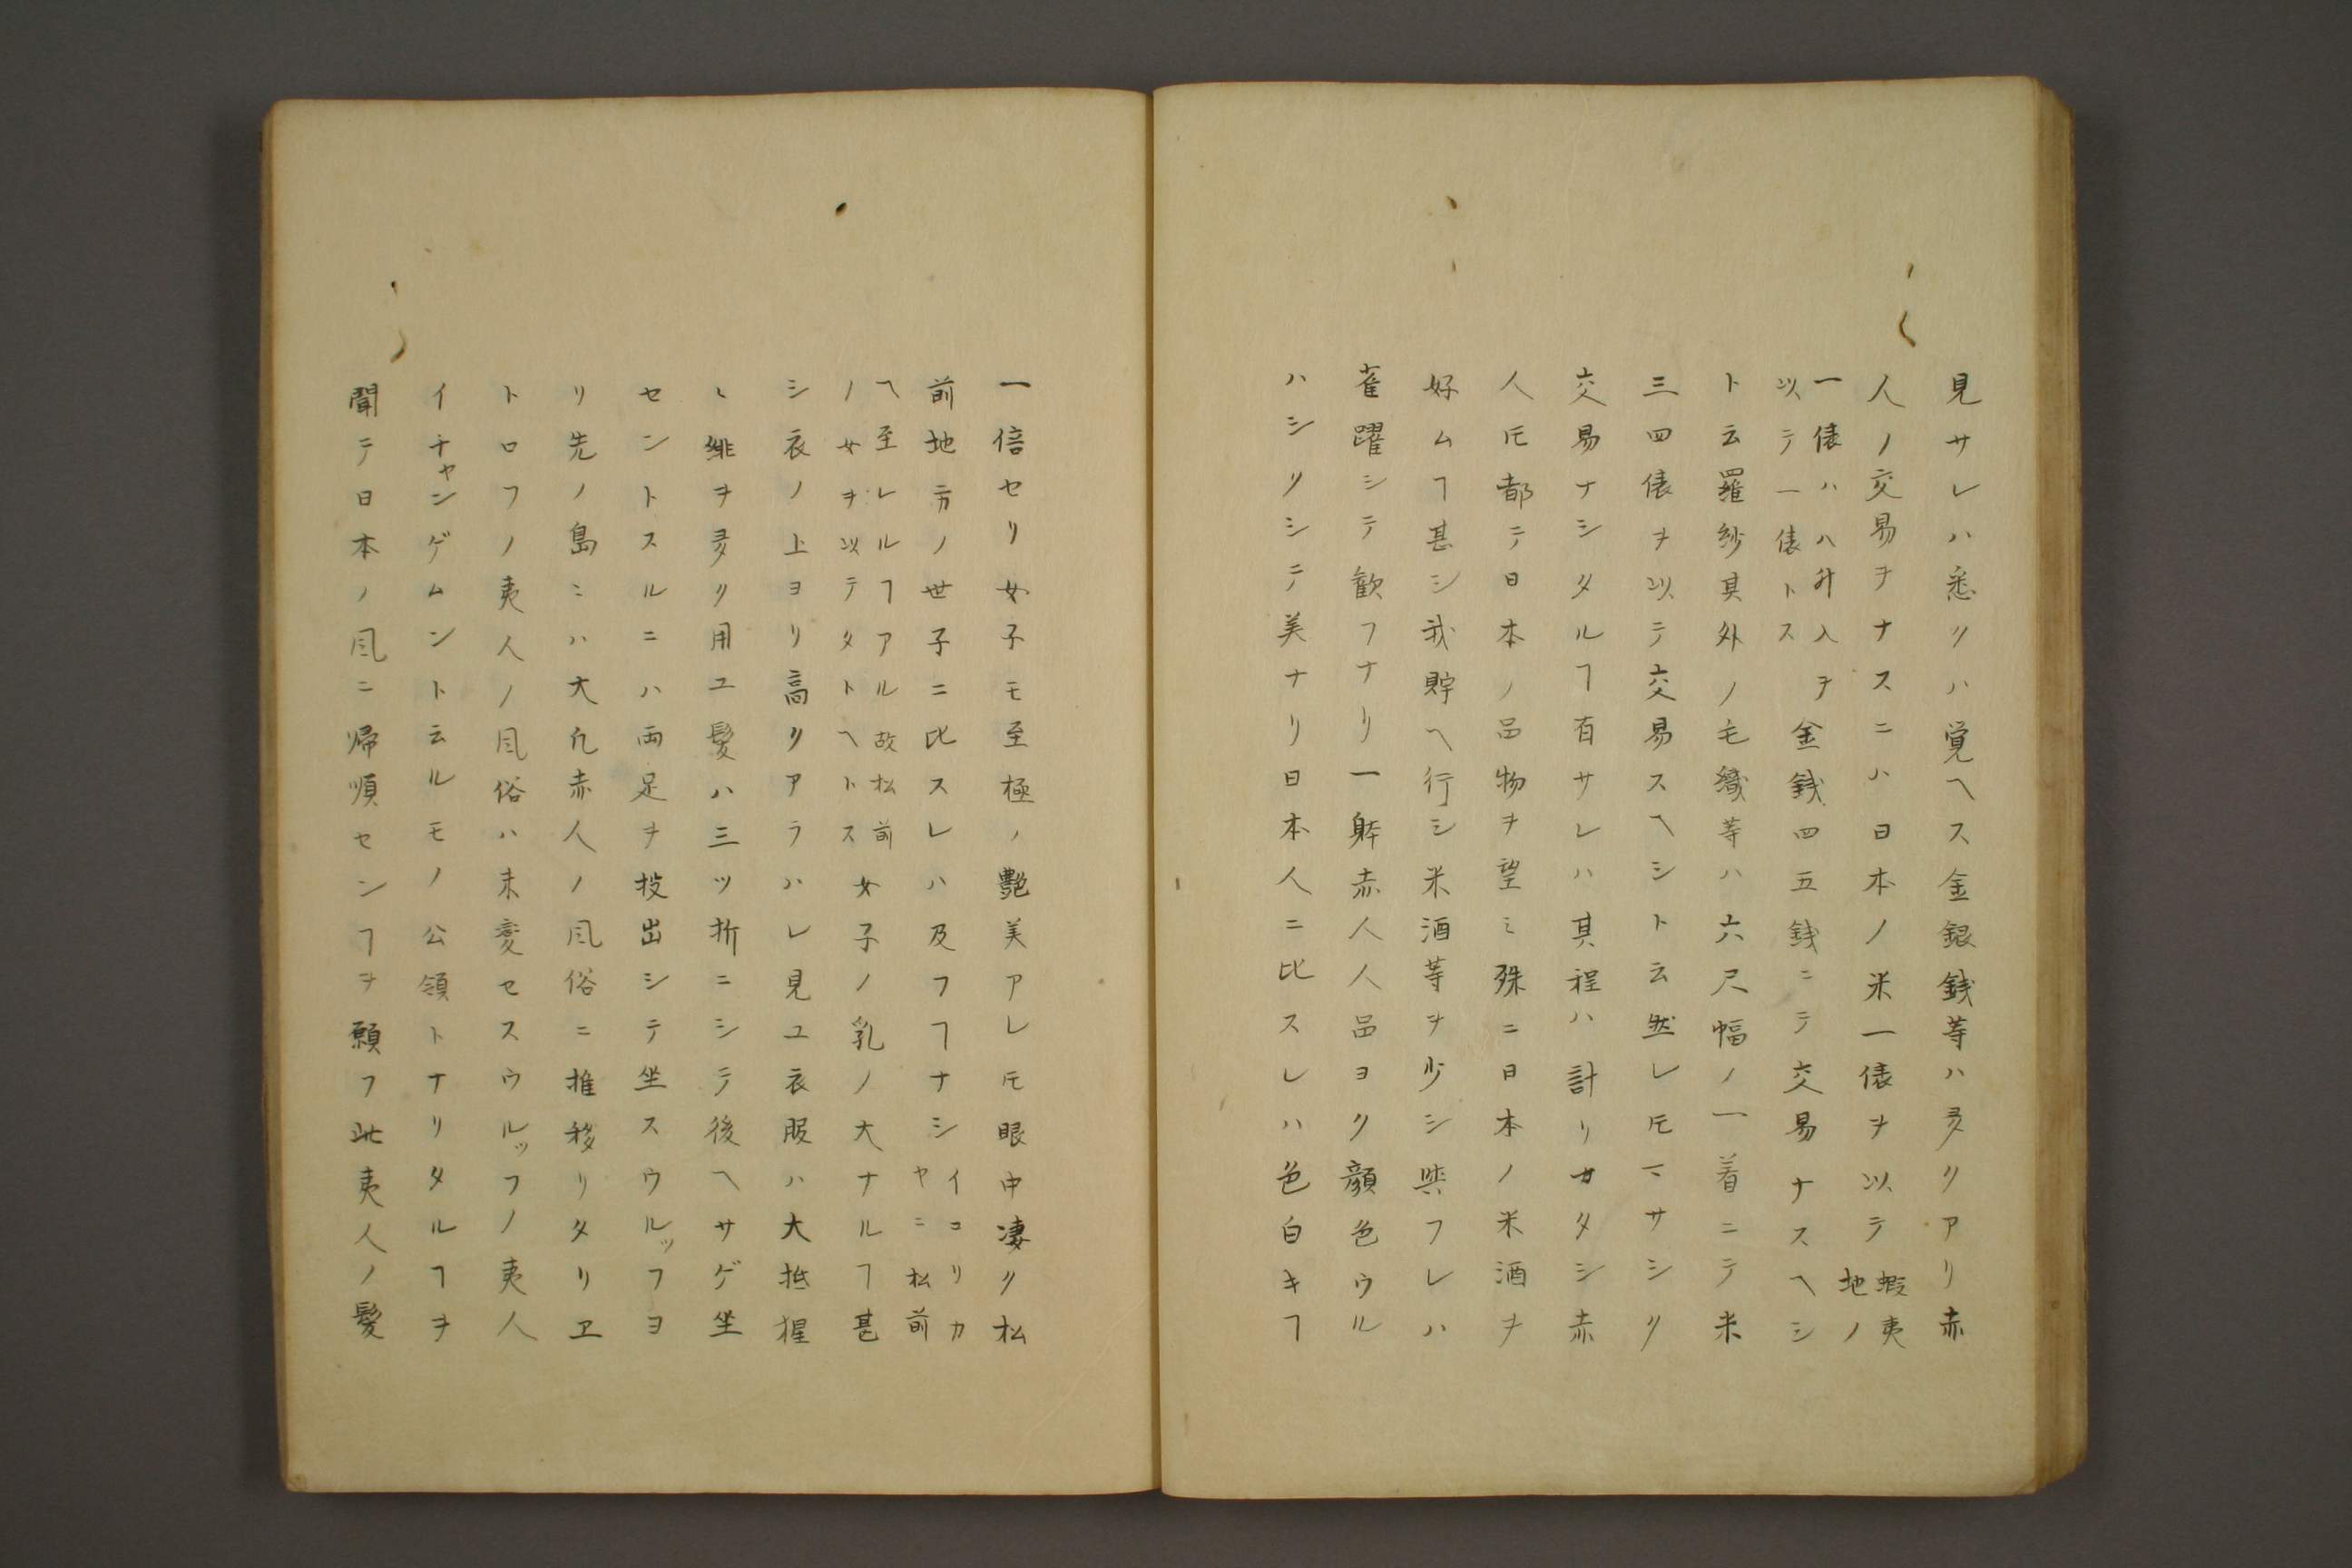 見サレハ悉クハ覚ヘス金銀銭等ハ多クアリ赤
人ノ交易ヲナスニハ日本ノ米一俵ヲ以テ蝦夷
地ノ
一俵ハ八升入ヲ
以テ一俵トス
金銭四五銭ニテ交易ナスヘシ
ト云羅紗其外ノ毛織等ハ六尺幅ノ一着ニテ米
三四俵ヲ以テ交易スヘシト云然レ𪜈マサシク
交易ナシタルヿ有サレハ其程ハ計リカタシ赤
人𪜈都テ日本ノ品物ヲ望ミ殊ニ日本ノ米酒ヲ
好ムヿ甚シ我貯ヘ行シ米酒等ヲ少シ與フレハ
雀躍シテ歓フナリ一躰赤人人品ヨク顔色ウル
ハシクシテ美ナリ日本人ニ比スレハ色白キヿ
一倍セリ女子モ至極ノ艶美アレ𪜈眼中凄ク松
前地方ノ世子ニ比スレハ及フヿナシ
イコリカ
ヤニ松前
ヘ至レルヿアル故松前
ノ女ヲ以テタトヘトス
女子ノ乳ノ大ナルヿ甚
シ衣ノ上ヨリ高クアラハレ見ユ衣服ハ大抵猩
〻緋ヲ多ク用ユ髪ハ三ツ折ニシテ後ヘサゲ坐
セントスルニハ両足ヲ投出シテ坐スウルッフヨ
リ先ノ島ミハ大凡赤人ノ風俗ニ推移リタリヱ
トロフノ夷人ノ風俗ハ未変セスウルッフノ夷人
イチャンゲムント云ルモノ公領トナリタルヿヲ
聞テ日本ノ風ニ帰順センヿヲ願フ此夷人ノ髪